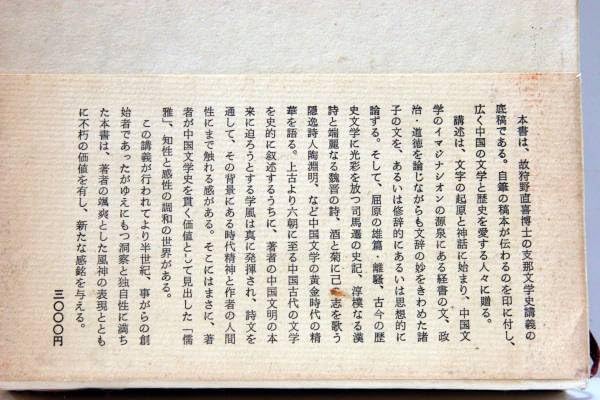 本書は、故狩野直喜博士の支那文学史講義の
底稿である。自筆の稿本が伝わるのを印に付し、
広く中国の文学と歴史を愛する人々に贈る。
講述は、文字の起原と神話に始まり、中国文
学のイマジナシオンの源泉にある経書の文、政
治・道徳を論じながらも文辞の妙をきわめた諸
子の文を、あるいは修辞的にあるいは思想的に
論ずる。そして、屈原の雄篇・離騒、古今の歴
史文学に光彩を放つ司馬遷の史記、淳樸なる漢
詩と端麗なる魏晋の詩、酒と菊に己が志を歌う
隠逸詩人陶淵明、など中国文学の黄金時代の精
華を語る。上古より六朝に至る中国古代の文学
を史的に叙述するうちに、著者の中国文明の本
来に迫ろうとする学風は真に発揮され、詩文を
通して、その背景にある時代精神と作者の人間
性にまで触れる感がある。そこにはまさに、著
者が中国文学史を貫く価値として見出した「儒
雅」、知性と感性の調和の世界がある。
この講義が行われてより半世紀、事がらの創
始者であったがゆえにもつ洞察と独自性に満ち
た本書は、著者の颯爽とした風神の表現ととも
に不朽の価値を有し、新たな感銘を与える。
三〇〇〇円